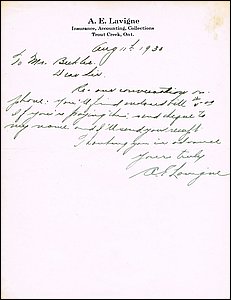 A. E. Lavigne
Insurance, Accounting, Collections
Trout Creek, Ont.
Aug 11th 1930
To Mr.
Dear Sir.
Re. our conversation on
phone. You'll find enclosed bill
If you're paying this send cheque to
my name and I'll send you receipt
Thanking you in advance
Yours truly
A E Lavigne